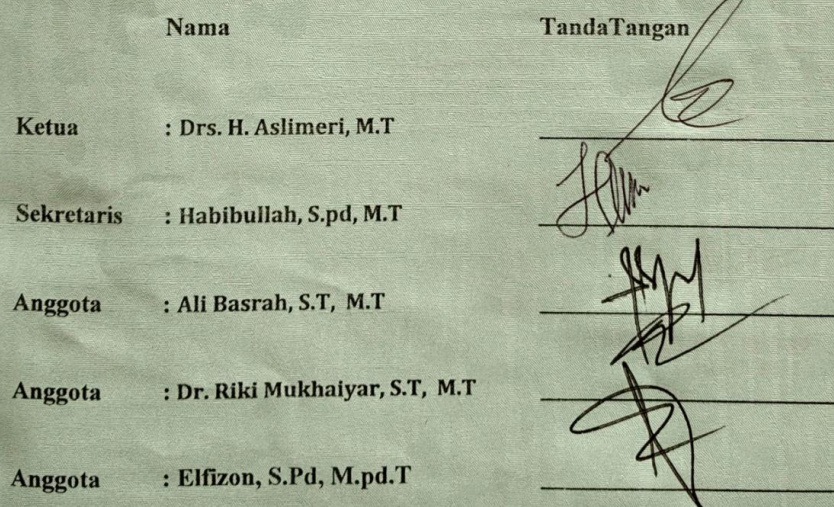 Nama TandaTangan
Ketua : Drs. H. Aslimeri, M.T
Sekretaris : Habibullah, S.pd, M.T
Anggota : Ali Basrah, S.T, M.T
Anggota : Dr. Riki Mukhaiyar, S.T, M.T
Anggota : Elfizon, S.Pd, M.pd.T